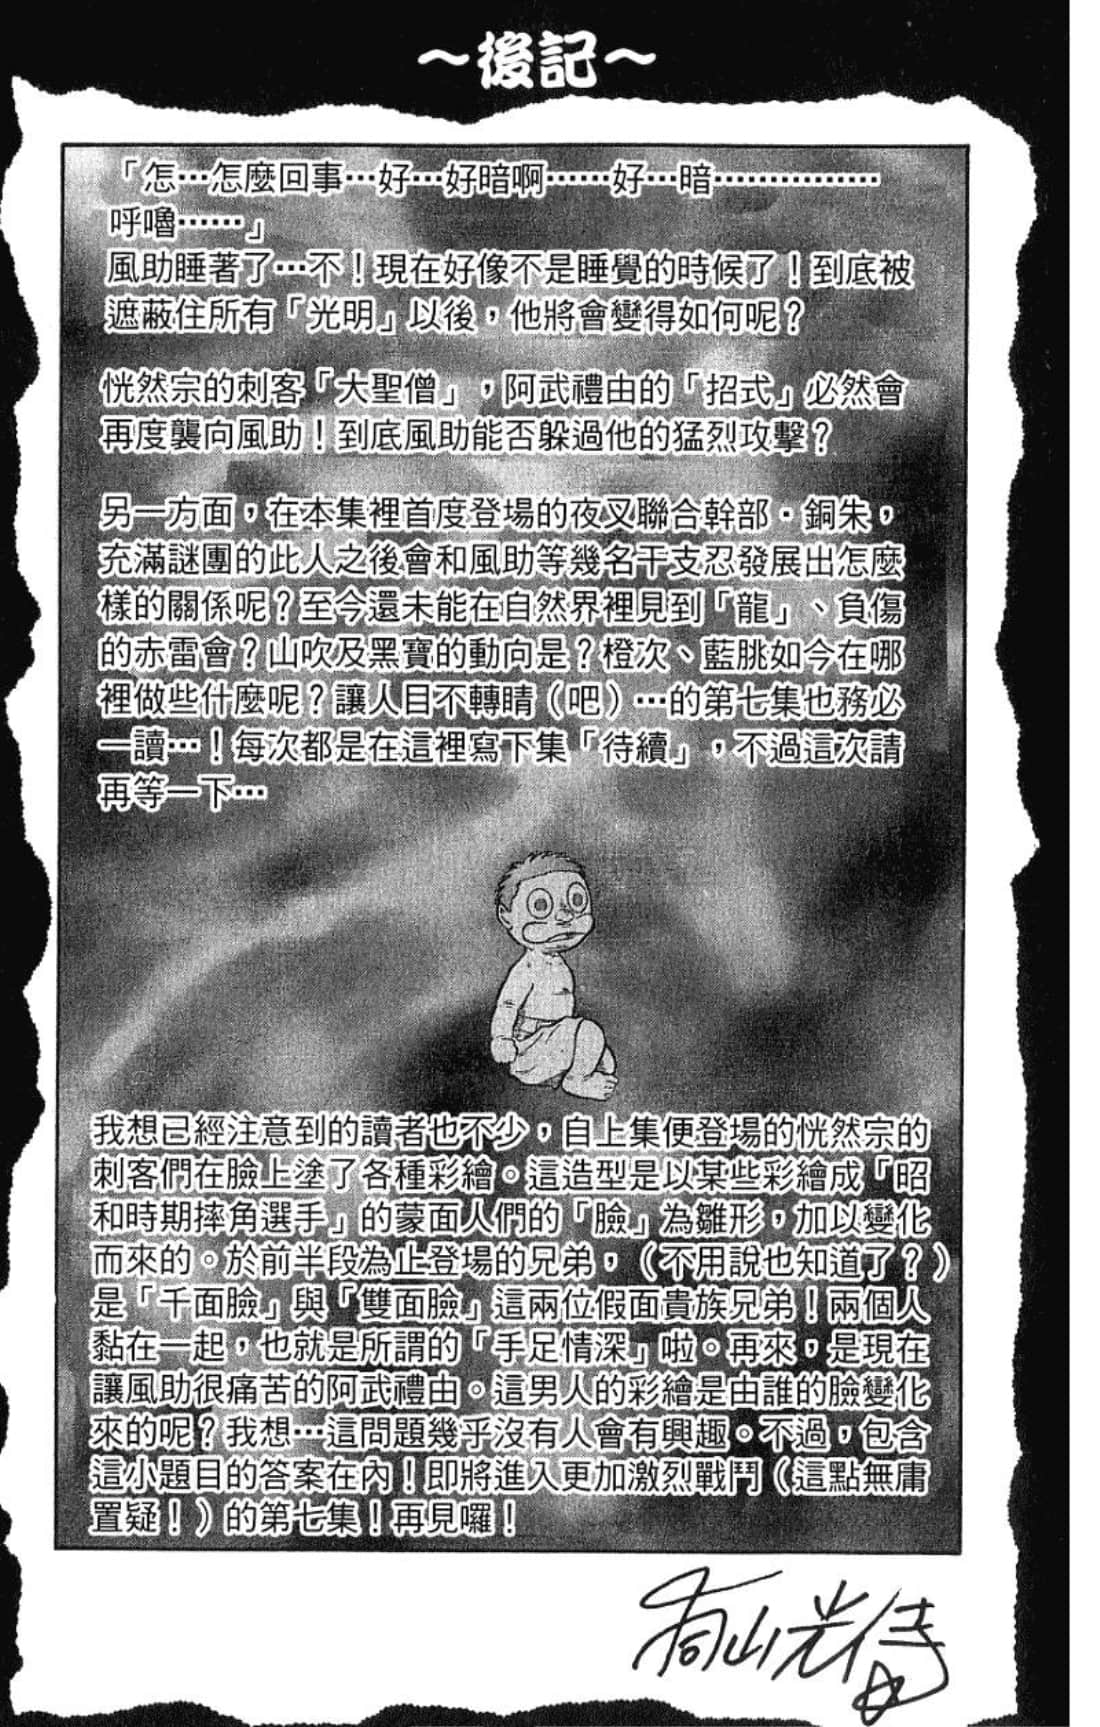 ～後記～
「怎…怎麼回事…好…好暗啊……好…暗……………
呼嚕……」
風助睡著了…不！現在好像不是睡覺的時候了！到底被
遮蔽住所有「光明」以後，他將會變得如何呢？
恍然宗的刺客「大聖僧」，阿武禮由的「招式」必然會
再度襲向風助！到底風助能否躲過他的猛烈攻擊？
另一方面，在本集裡首度登場的夜叉聯合幹部・銅朱，
充滿謎團的此人之後會和風助等幾名干支忍發展出怎麼
樣的關係呢？至今還未能在自然界裡見到「龍」、負傷
的赤雷會？山吹及黑寶的動向是？橙次、藍朓如今在哪
裡做些什麼呢？讓人目不轉睛（吧）…的第七集也務必
一讀…！每次都是在這裡寫下集「待續」，不過這次請
再等一下…
我想已經注意到的讀者也不少，自上集便登場的恍然宗的
刺客們在臉上塗了各種彩繪。這造型是以某些彩繪成「昭
和時期摔角選手」的蒙面人們的「臉」為雛形，加以變化
而來的。於前半段為止登場的兄弟，（不用說也知道了？）
是「千面臉」與「雙面臉」這兩位假面貴族兄弟！兩個人
黏在一起，也就是所謂的「手足情深」啦。再來，是現在
讓風助很痛苦的阿武禮由。這男人的彩繪是由誰的臉變化
來的呢？我想…這問題幾乎沒有人會有興趣。不過，包含
這小題目的答案在內！即將進入更加激烈戰鬥（這點無庸
置疑！）的第七集！再見囉！